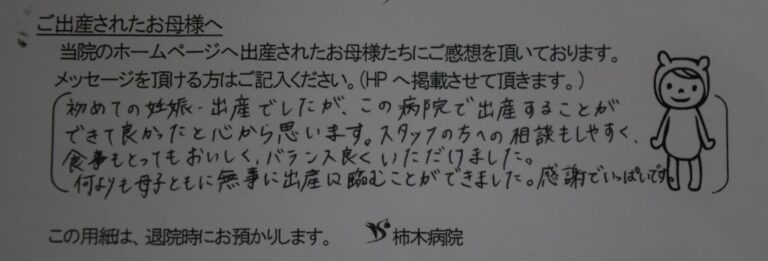 ご出産されたお母様へ
当院のホームページへ出産されたお母様たちにご感想を頂いております。
メッセージを頂ける方はご記入ください。(HPへ掲載させて頂きます。)
初めての妊娠・出産でしたが、この病院で出産することが
できて良かったと心から思います。スタッフの方への相談もしやすく、
食事もとってもおいしく、バランス良くいただけました。
何よりも母子ともに無事に出産に臨むことができました。感謝でいっぱいです。
この用紙は、退院時にお預かりします。 柿木病院